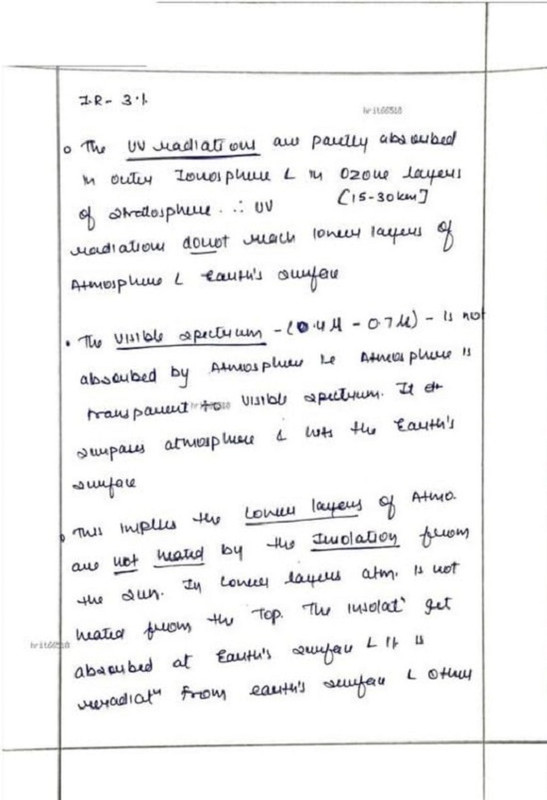 I.R - 3%
hrit66518
The UV radiations are partly absorbed
in outer Ionosphere & in Ozone layers
of stratosphere. ∴ UV [15-30km]
radiations donot reach lower layers of
Atmosphere & Earth's surface
The visible spectrum - (0.4μ - 0.7μ) - is not
absorbed by Atmosphere ie Atmosphere is
transparent to visible spectrum. It
surpases atmosphere & hits the Earth's
surface
This implies the Lower layers of Atmo.
are not heated by the Insolation from
the sun. In Lower layers atm. is not
heated from the Top. The insolatn get
hrit66518
absorbed at Earth's surface & it is
reradiatn from earth's surface & other